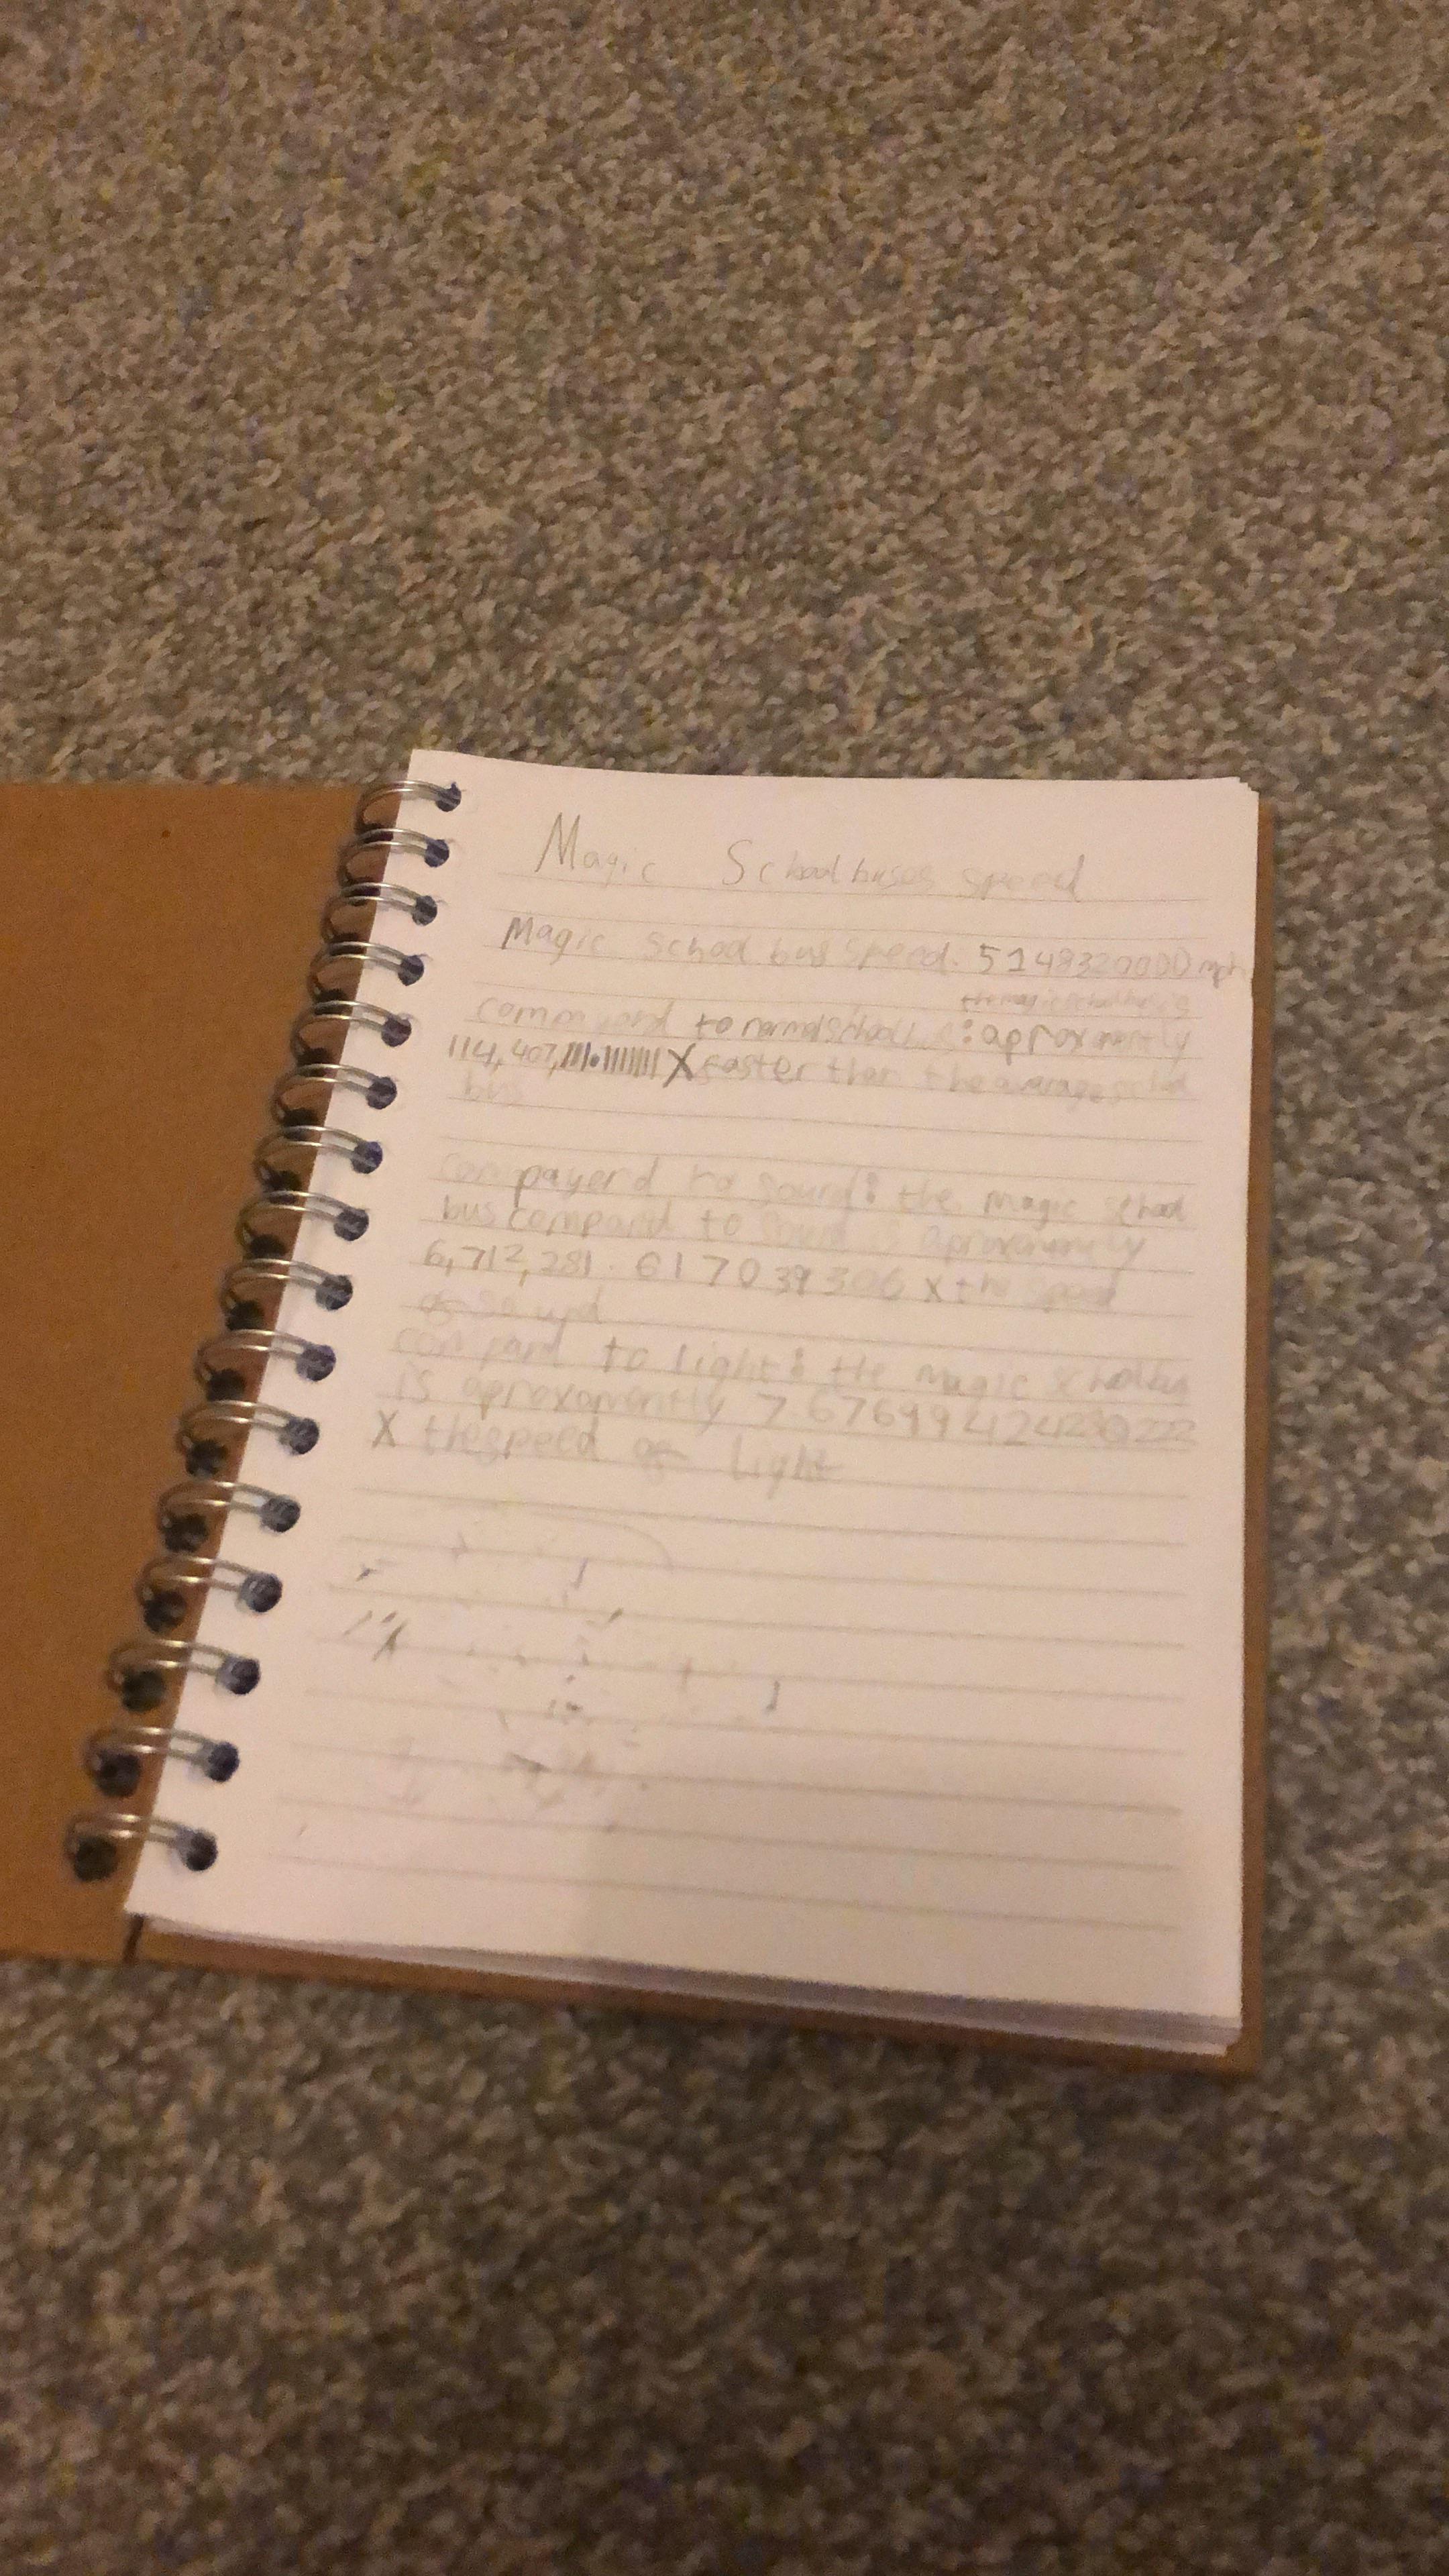 Magic School buses speed
Magic School bus speed. 5148320000 mph
the magic school bus is
compayerd to normal school : aproxamently
114,407,111.11111111 X faster than the avarage school
bus
compayerd to sound: the magic school
bus compard to sound is aproxamently
6,712,281.617039306 x the speed
of sound
compard to light: the magic school bus
is aproxamently 7.67699424230222
X the speed of light